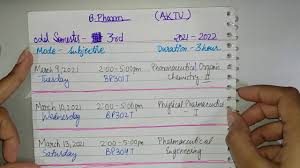 B.Pharm (AKTU)
odd Semester - 3rd 2021 - 2022
Mode - Subjective Duration - 3 hour
March 9, 2021 2:00-5:00pm Pharmaceutical Organic
Tuesday BP301T Chemistry II
March 10, 2021 2:00-5:00pm Physical Pharmaceutics
Wednesday BP302T - I
March 13, 2021 2:00-5:00pm Pharmaceutical
Saturday BP304T Engineering